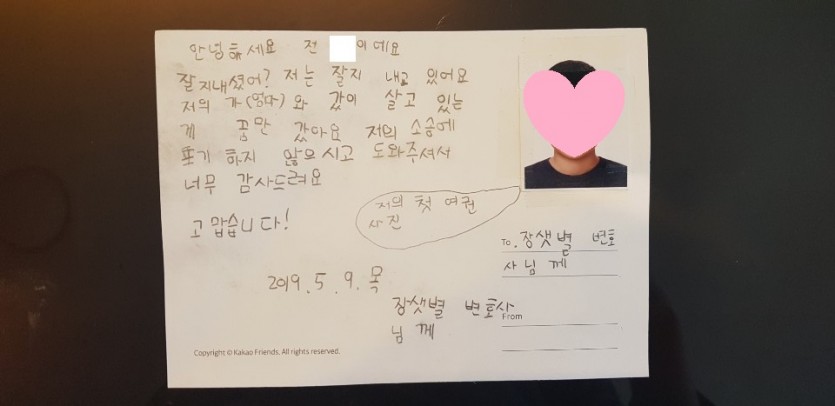 안녕하세요 전 이에요
잘 지내셨어? 저는 잘지 내고 있어요
저의 가(엄마)와 같이 살고 있는
게 꿈만 같아요 저의 소송에
포기 하지 않으시고 도와주셔서
너무 감사드려요
저의 첫 여권
사진
고맙습니다!
To. 장샛별 변호
사님께
2019. 5. 9. 목
장샛별 변호사
님께
From
Copyright © Kakao Friends. All rights reserved.